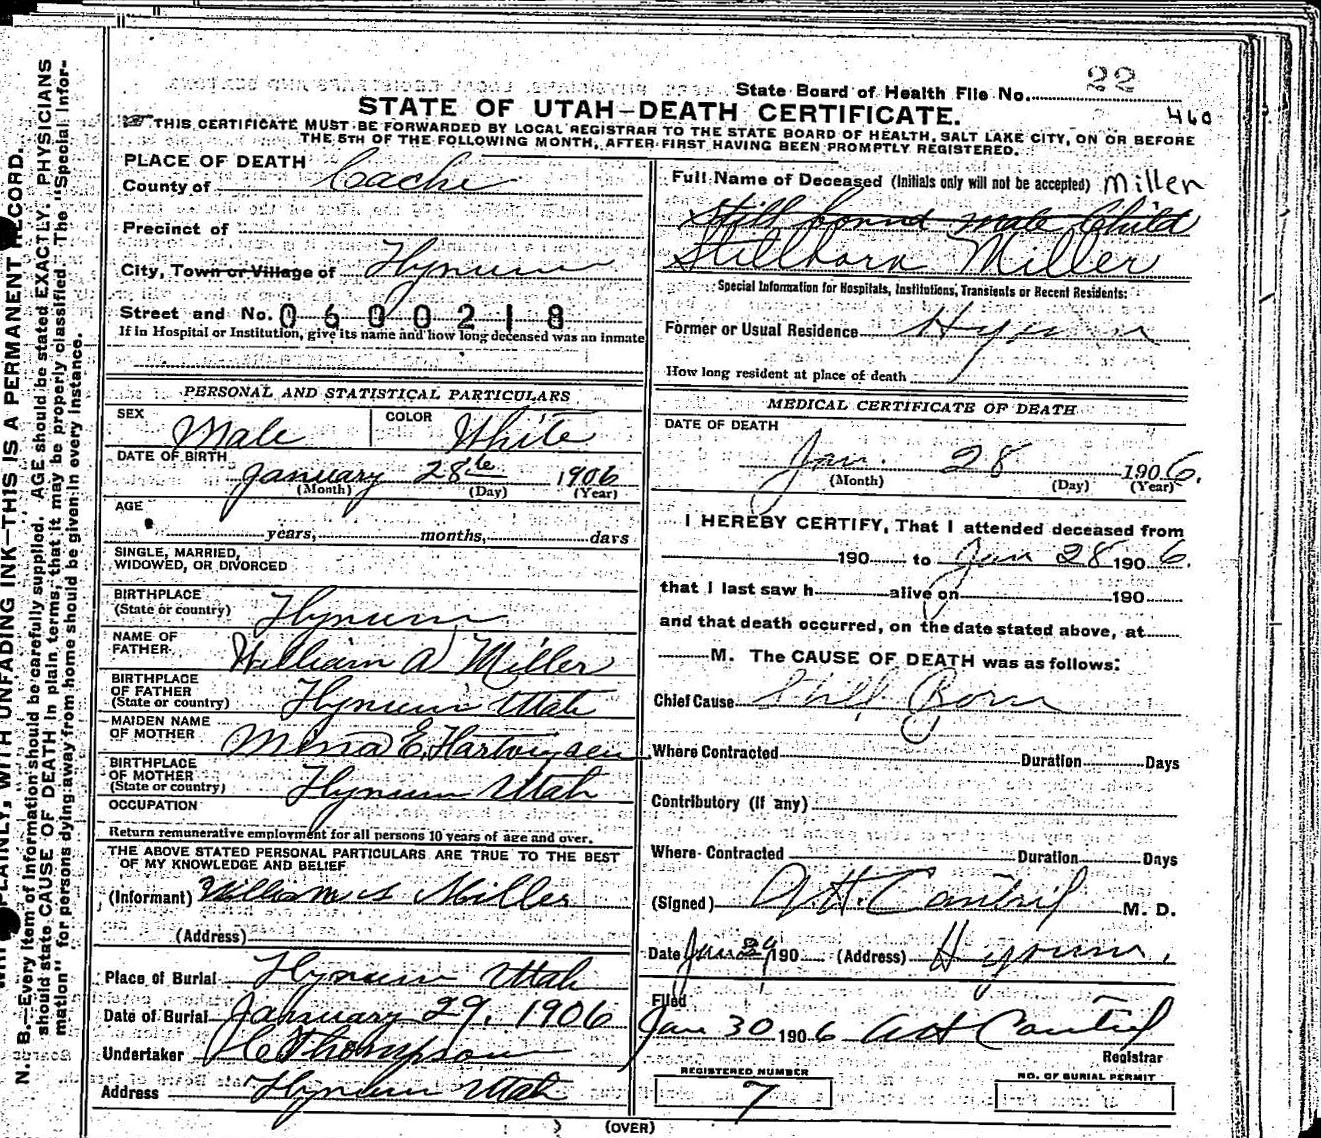 State Board of Health File No. 22
STATE OF UTAH—DEATH CERTIFICATE.
460
THIS CERTIFICATE MUST BE FORWARDED BY LOCAL REGISTRAR TO THE STATE BOARD OF HEALTH, SALT LAKE CITY, ON OR BEFORE
THE 5TH OF THE FOLLOWING MONTH, AFTER FIRST HAVING BEEN PROMPTLY REGISTERED.
PLACE OF DEATH
County of Cache
Precinct of
City, Town or Village of Hyrum
Street and No. 0600218
If in Hospital or Institution, give its name and how long deceased was an inmate
PERSONAL AND STATISTICAL PARTICULARS
SEX Male COLOR White
DATE OF BIRTH January 28th 1906
(Month) (Day) (Year)
AGE
years, months, days
SINGLE, MARRIED,
WIDOWED, OR DIVORCED
BIRTHPLACE
(State or country) Hyrum
NAME OF
FATHER William A Miller
BIRTHPLACE
OF FATHER
(State or country) Hyrum Utah
MAIDEN NAME
OF MOTHER E. Hartvigsen
BIRTHPLACE
OF MOTHER
(State or country) Hyrum Utah
OCCUPATION
Return remunerative employment for all persons 10 years of age and over.
THE ABOVE STATED PERSONAL PARTICULARS ARE TRUE TO THE BEST
OF MY KNOWLEDGE AND BELIEF
(Informant) William A Miller
(Address)
Place of Burial Hyrum Utah
Date of Burial January 29, 1906
Undertaker Thompson
Address Hyrum Utah
Full Name of Deceased (Initials only will not be accepted) Miller
Still born male Child
Stillborn Miller
Special Information for Hospitals, Institutions, Transients or Recent Residents:
Former or Usual Residence Hyrum
How long resident at place of death
MEDICAL CERTIFICATE OF DEATH
DATE OF DEATH
Jan. 28 1906.
(Month) (Day) (Year)
I HEREBY CERTIFY, That I attended deceased from
190 to Jan 28 1906.
that I last saw h alive on 190
and that death occurred, on the date stated above, at
M. The CAUSE OF DEATH was as follows:
Chief Cause Still Born
Where Contracted Duration Days
Contributory (If any)
Where Contracted Duration Days
(Signed) A.H. Cantril M. D.
Date Jan 29 190 (Address) Hyrum.
Filed
Jan 30 1906 AH Cantril
Registrar
REGISTERED NUMBER
7
NO. OF BURIAL PERMIT
(OVER)
PLAINLY, WITH UNFADING INK—THIS IS A PERMANENT RECORD.
N. B.—Every item of information should be carefully supplied. AGE should be stated EXACTLY. PHYSICIANS
should state CAUSE OF DEATH in plain terms, that it may be properly classified. The "Special Infor-
mation" for persons dying away from home should be given in every instance.